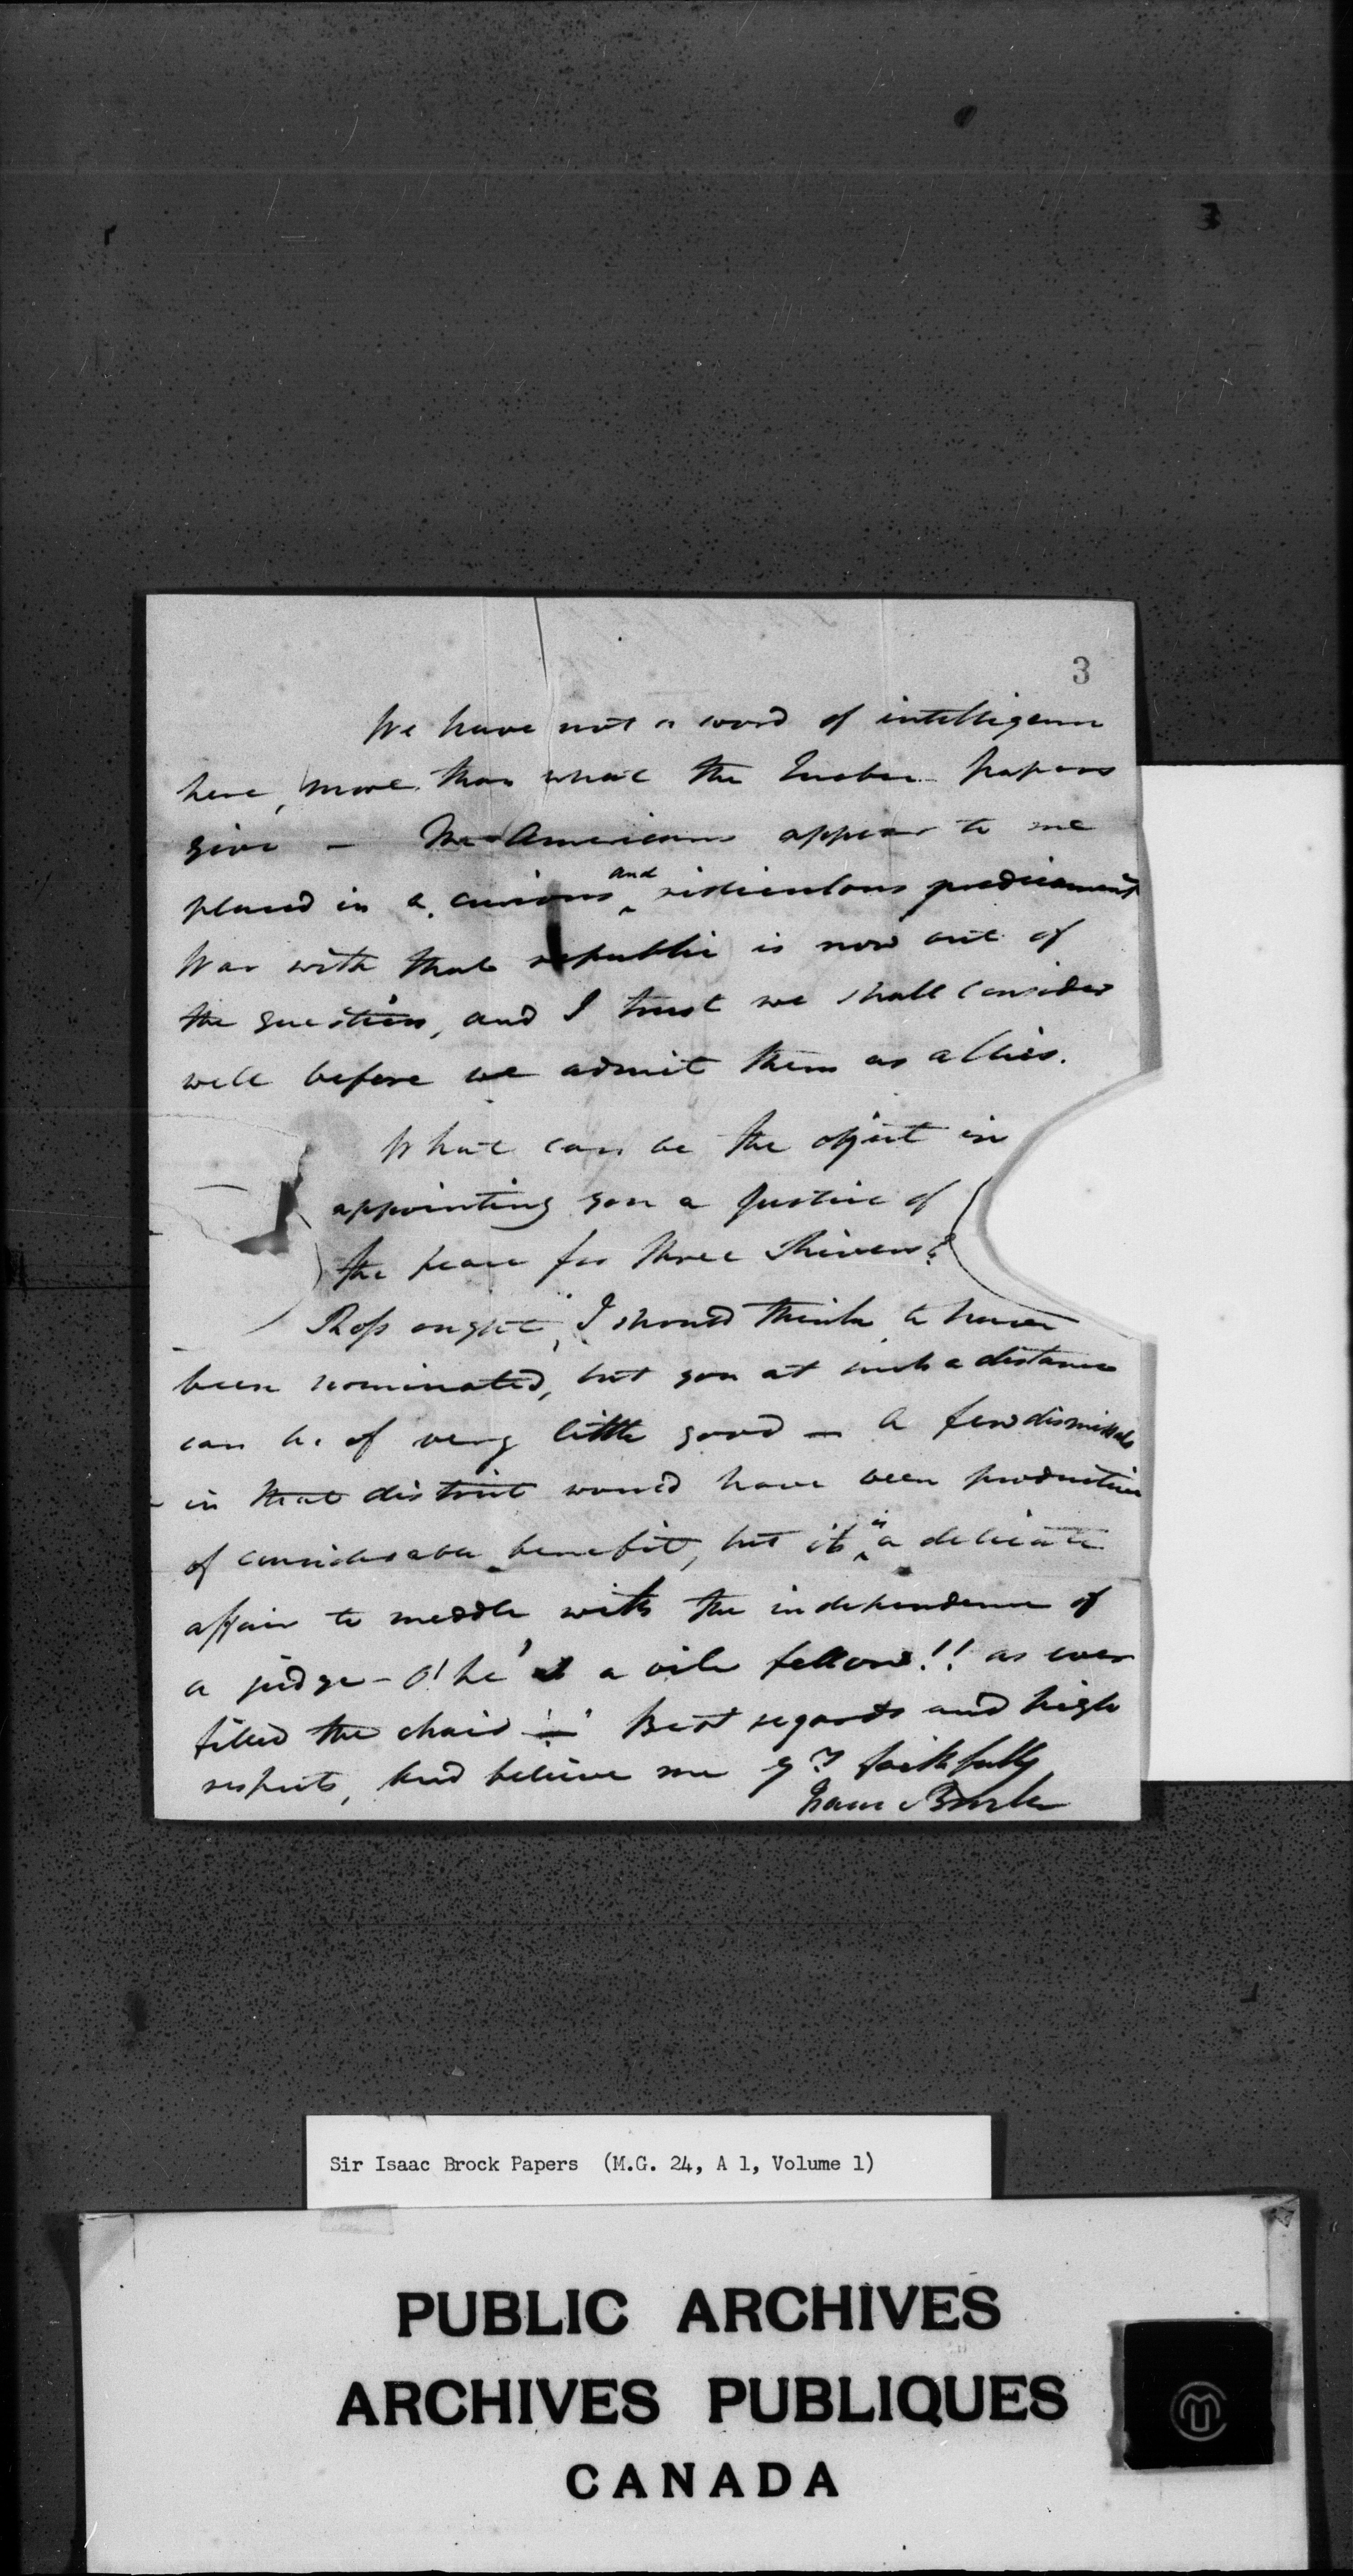 3
We have not a word of intelligence
here, more than what the Quebec papers
give – The Americans appear to me
placed in a curious and ridiculous predicament
War with that republic is now out of
the question, and I trust we shall consider
well before we admit them as allies.
What can be the object in
appointing you a Justice of
the peace for three Rivers?
Ross ought, I should think to have
been nominated, but you at such a distance
can be of very little good – A few dismissals
in that district would have been productive
of considerable benefit, but it is a delicate
affair to meddle with the independence of
a judge – O! he's a vile fellow!! as ever
filled the chair! – Best regards and high
respects, and believe me yrs faithfully
Isaac Brock
Sir Isaac Brock Papers (M.G. 24, A 1, Volume 1)
PUBLIC ARCHIVES
ARCHIVES PUBLIQUES
CANADA